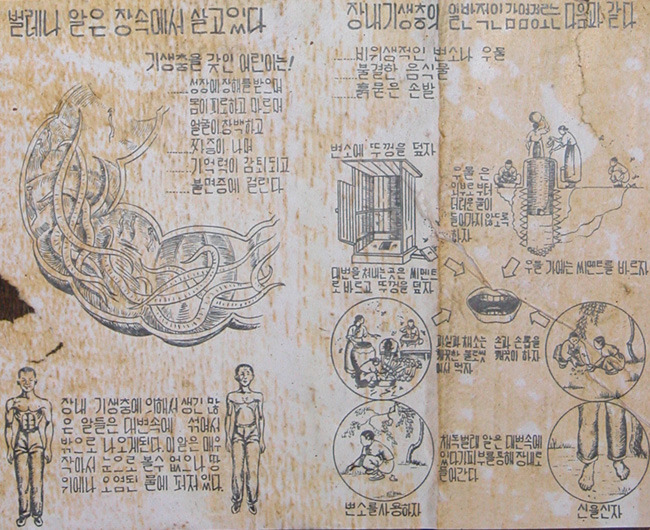 벌레나 알은 장속에서 살고있다
기생충을 갖인 어린이는!
성장에 장해를 받으며
몸이 피로하고 마르며
얼굴이 창백하고
짜증이 나며
기억력이 감퇴되고
불면증에 걸린다
장내 기생충에 의해서 생긴 많
은 알들은 대변속에 섞여서
밖으로 나오게된다. 이 알은 매우
작아서 눈으로 볼수 없으나 땅
위에나 오염된 물에 퍼져있다.
장내기생충의 일반적인 감염경로는 다음과 같다
비위생적인 변소나 우물
불결한 음식물
흙묻은 손발
변소에 뚜껑을 덮자
우물은
외부로부터
더러운 물이
들어가지 않도록
하자
대변을 쳐내는 곳은 씨멘트
로 바르고 뚜껑을 덮자
우물 가에는 씨멘트를 바르자
과실과 채소는
깨끗한 물로씻
어서 먹자
손과 손톱을
깨끗이 하자
변소를사용하자
채독벌레 알은 대변속에
있다가 피부를통해 장내로
들어간다
신을신자